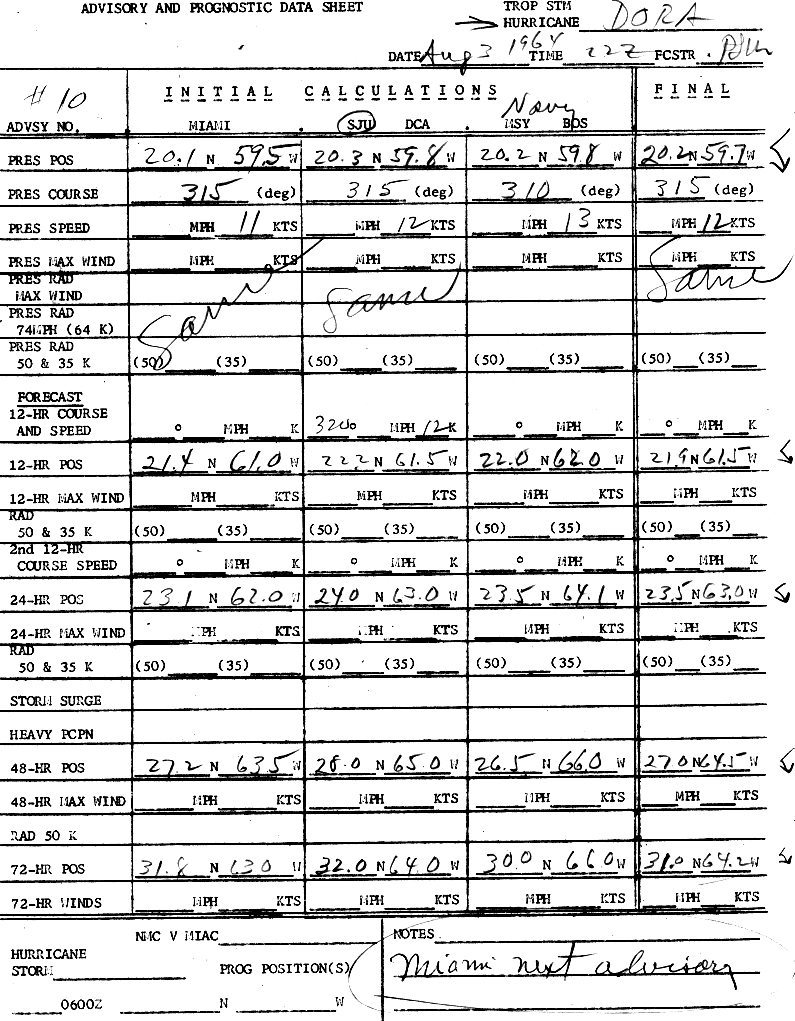 ADVISORY AND PROGNOSTIC DATA SHEET
TROP STM
HURRICANE DORA
DATE Aug 3 1964 TIME 22Z FCSTR.
# 10
INITIAL CALCULATIONS FINAL
Navy
ADVSY NO. MIAMI . SJU DCA . MSY BOS
PRES POS 20.1 N 59.5 W 20.3 N 59.8 W 20.2 N 59.8 W 20.2 N 59.7 W
PRES COURSE 315 (deg) 315 (deg) 310 (deg) 315 (deg)
PRES SPEED MPH 11 KTS MPH 12 KTS MPH 13 KTS MPH 12 KTS
PRES MAX WIND MPH KTS MPH KTS MPH KTS MPH KTS
PRES RAD
MAX WIND Same Same Same
PRES RAD
74MPH (64 K)
PRES RAD
50 & 35 K (50) (35) (50) (35) (50) (35) (50) (35)
FORECAST
12-HR COURSE
AND SPEED ° MPH K 320° MPH 12K ° MPH K ° MPH K
12-HR POS 21.4 N 61.0 W 22.2 N 61.5 W 22.0 N 62.0 W 21.9 N 61.5 W
12-HR MAX WIND MPH KTS MPH KTS MPH KTS MPH KTS
RAD
50 & 35 K (50) (35) (50) (35) (50) (35) (50) (35)
2nd 12-HR
COURSE SPEED ° MPH K ° MPH K ° MPH K ° MPH K
24-HR POS 23.1 N 62.0 W 24.0 N 63.0 W 23.5 N 64.1 W 23.5 N 63.0 W
24-HR MAX WIND MPH KTS MPH KTS MPH KTS MPH KTS
RAD
50 & 35 K (50) (35) (50) (35) (50) (35) (50) (35)
STORM SURGE
HEAVY PCPN
48-HR POS 27.2 N 63.5 W 28.0 N 65.0 W 26.5 N 66.0 W 27.0 N 64.5 W
48-HR MAX WIND MPH KTS MPH KTS MPH KTS MPH KTS
RAD 50 K
72-HR POS 31.8 N 63.0 W 32.0 N 64.0 W 30.0 N 66.0 W 31.0 N 64.2 W
72-HR WINDS MPH KTS MPH KTS MPH KTS MPH KTS
NMC V MIAC
HURRICANE
STORM PROG POSITION(S)
0600Z N W
NOTES
Miami next advisory